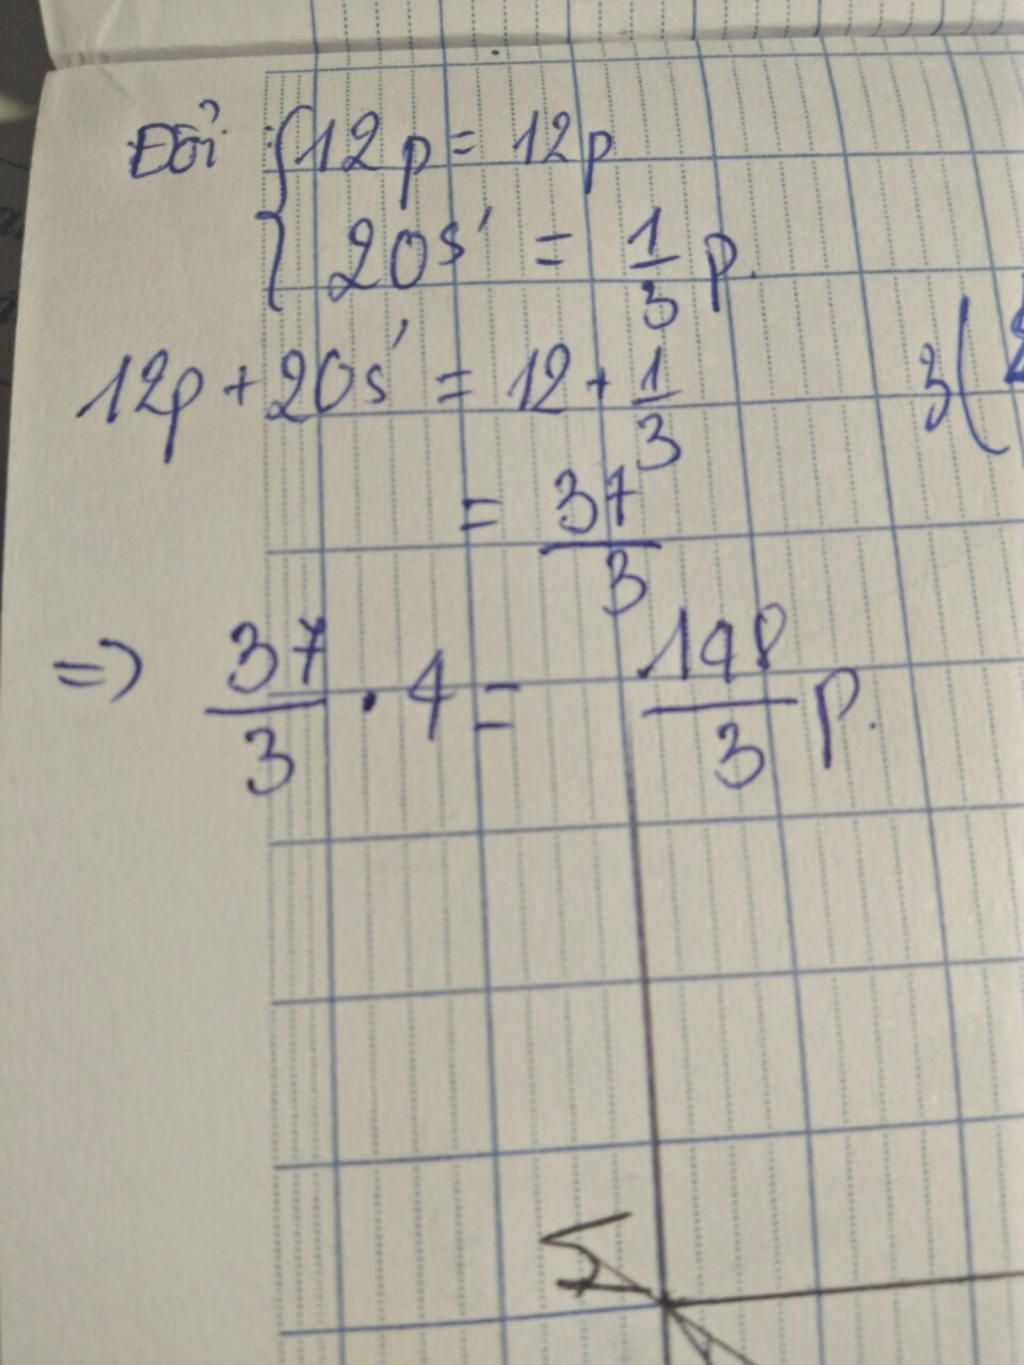 Đổi { 12p = 12p
20s' = 1/3 p.
12p + 20s' = 12 + 1/3
= 37/3
=> 37/3 . 4 = 148/3 p.
3(